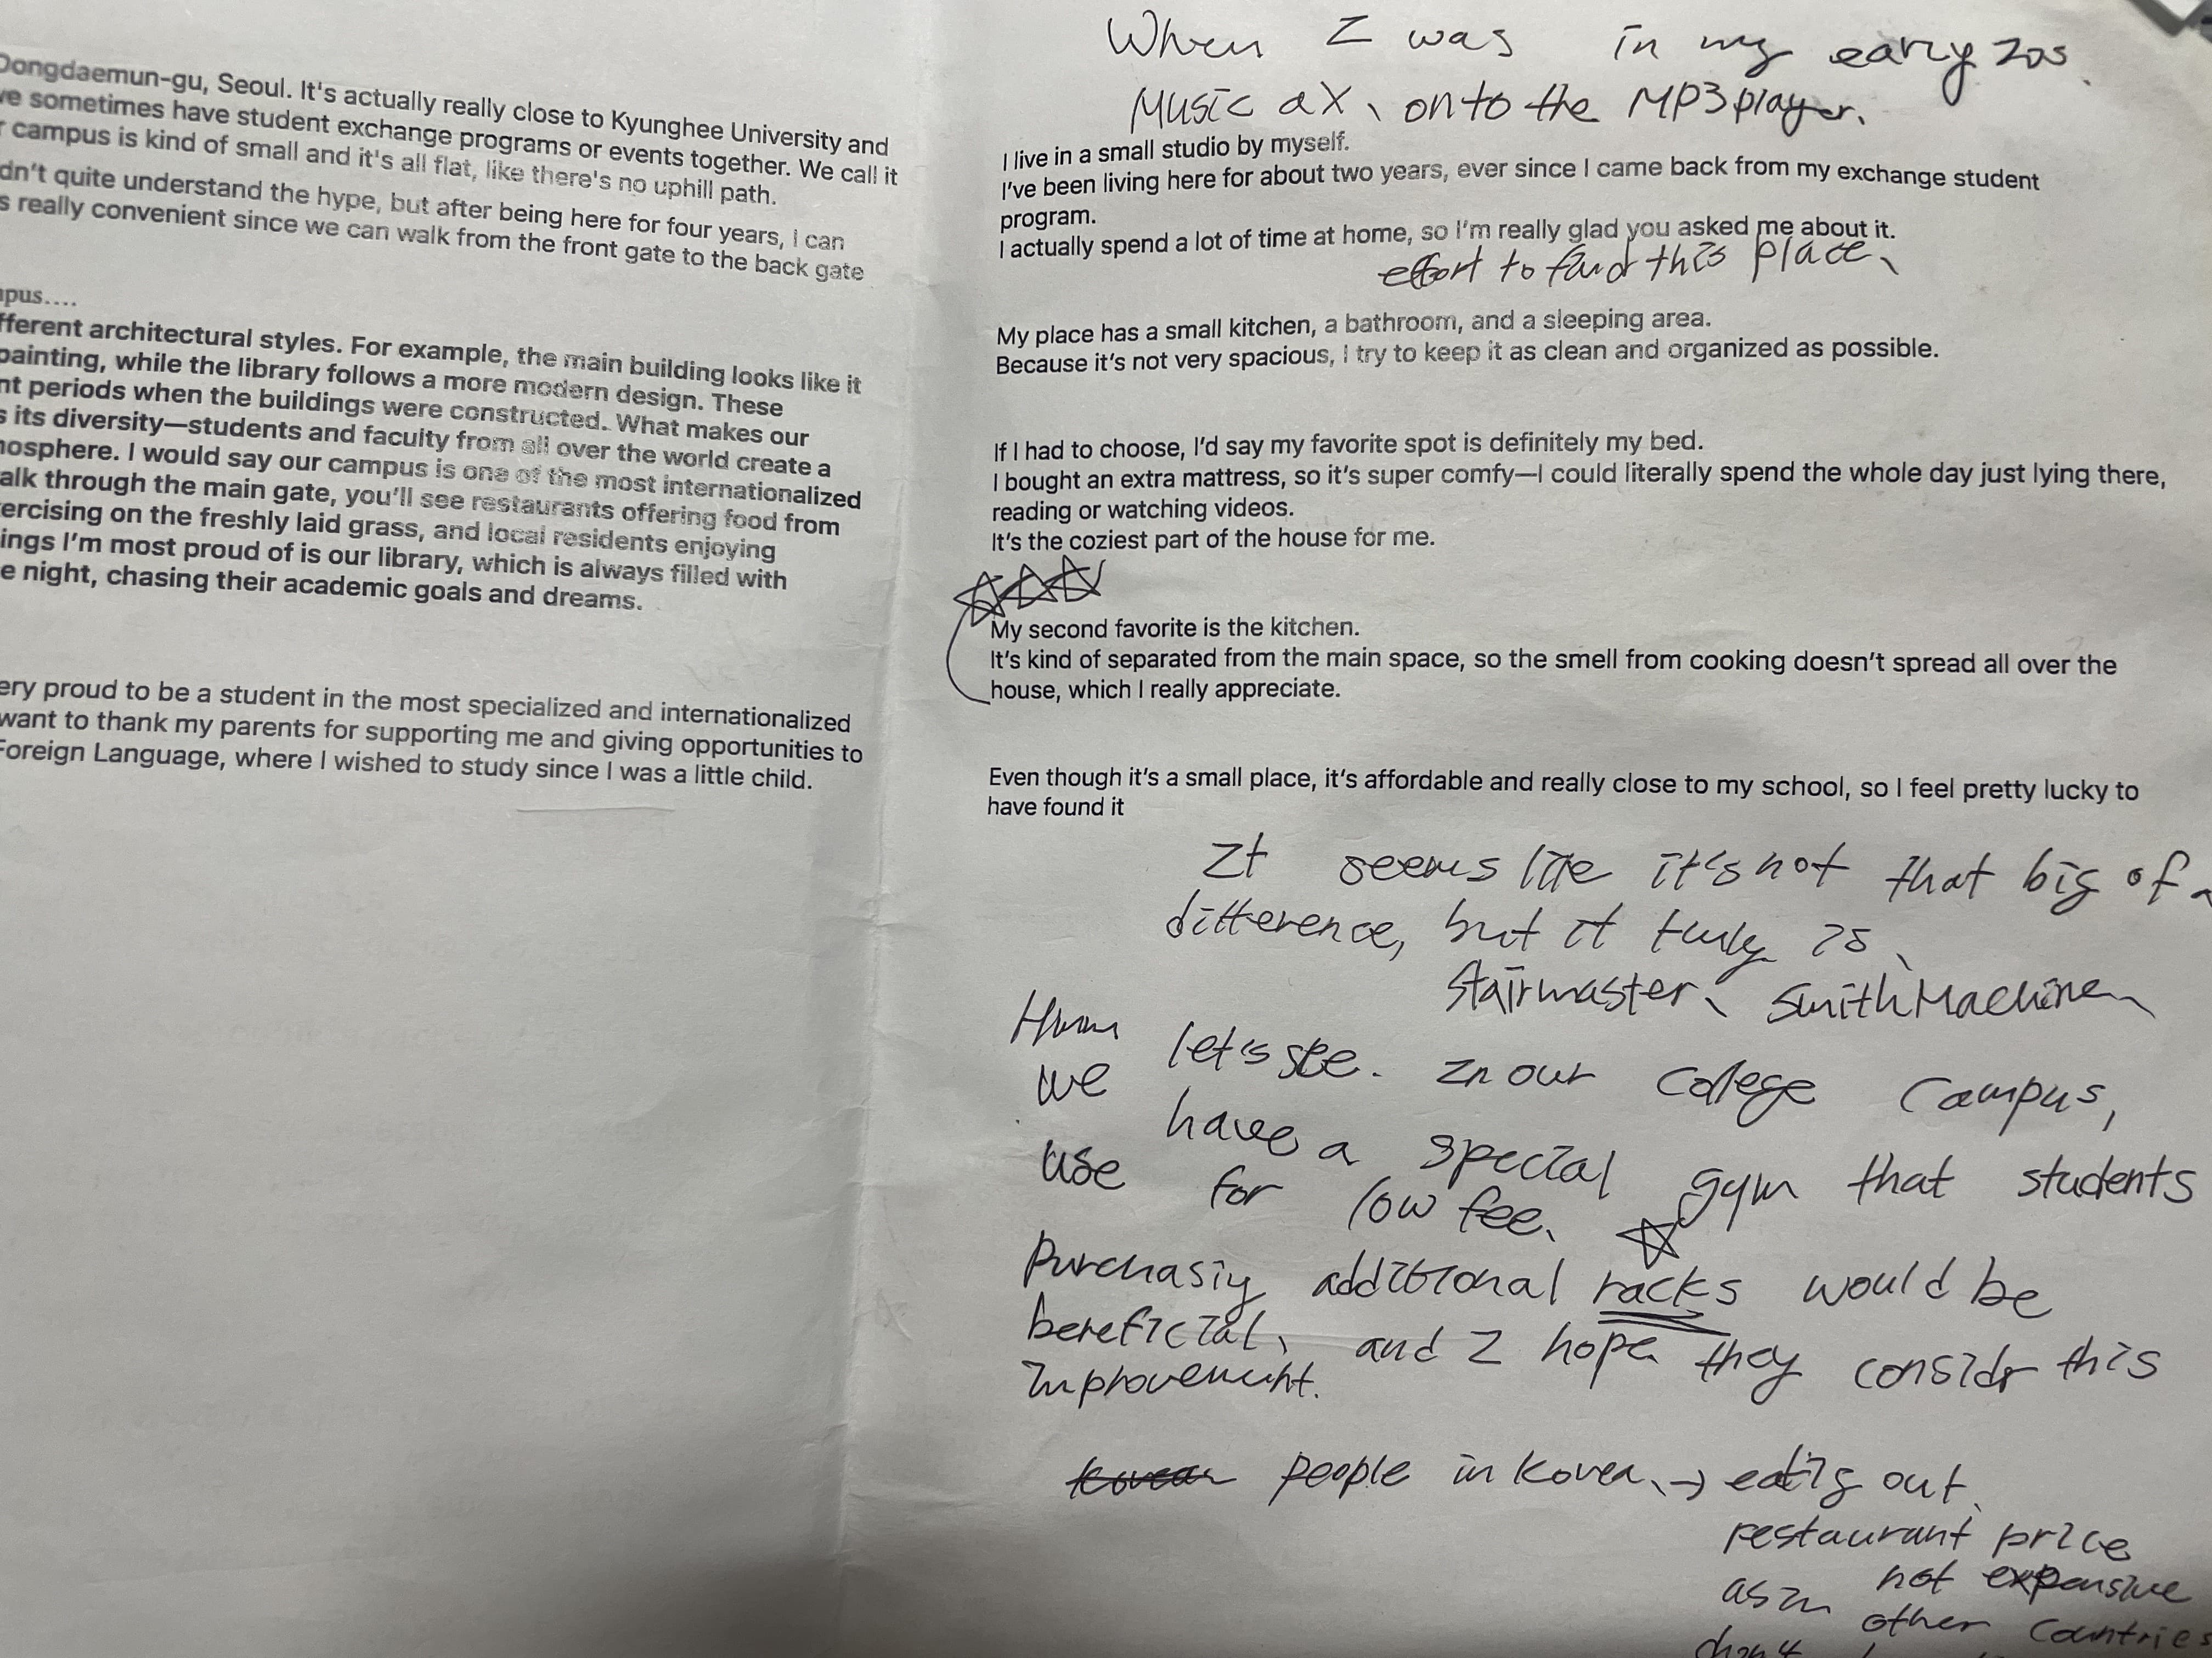 Dongdaemun-gu, Seoul. It's actually really close to Kyunghee University and
ve sometimes have student exchange programs or events together. We call it
r campus is kind of small and it's all flat, like there's no uphill path.
dn't quite understand the hype, but after being here for four years, I can
s really convenient since we can walk from the front gate to the back gate
mpus....
fferent architectural styles. For example, the main building looks like it
painting, while the library follows a more modern design. These
nt periods when the buildings were constructed. What makes our
s its diversity—students and faculty from all over the world create a
nosphere. I would say our campus is one of the most internationalized
alk through the main gate, you'll see restaurants offering food from
ercising on the freshly laid grass, and local residents enjoying
ings I'm most proud of is our library, which is always filled with
e night, chasing their academic goals and dreams.
ery proud to be a student in the most specialized and internationalized
want to thank my parents for supporting me and giving opportunities to
Foreign Language, where I wished to study since I was a little child.
When I was in my early 20s.
Music onto the MP3 player.
I live in a small studio by myself.
I've been living here for about two years, ever since I came back from my exchange student
program.
I actually spend a lot of time at home, so I'm really glad you asked me about it.
effort to find this place.
My place has a small kitchen, a bathroom, and a sleeping area.
Because it's not very spacious, I try to keep it as clean and organized as possible.
If I had to choose, I'd say my favorite spot is definitely my bed.
I bought an extra mattress, so it's super comfy—I could literally spend the whole day just lying there,
reading or watching videos.
It's the coziest part of the house for me.
My second favorite is the kitchen.
It's kind of separated from the main space, so the smell from cooking doesn't spread all over the
house, which I really appreciate.
Even though it's a small place, it's affordable and really close to my school, so I feel pretty lucky to
have found it
It seems like it's not that big of a
difference, but it truly is.
Stairmaster, Smith Machine
Hmm let's see. In our college campus,
we have a special gym that students
use for low fee.
Purchasing additional racks would be
beneficial, and I hope they consider this
Improvement.
people in Korea → eating out.
restaurant price
not expensive
as in other countries
don't